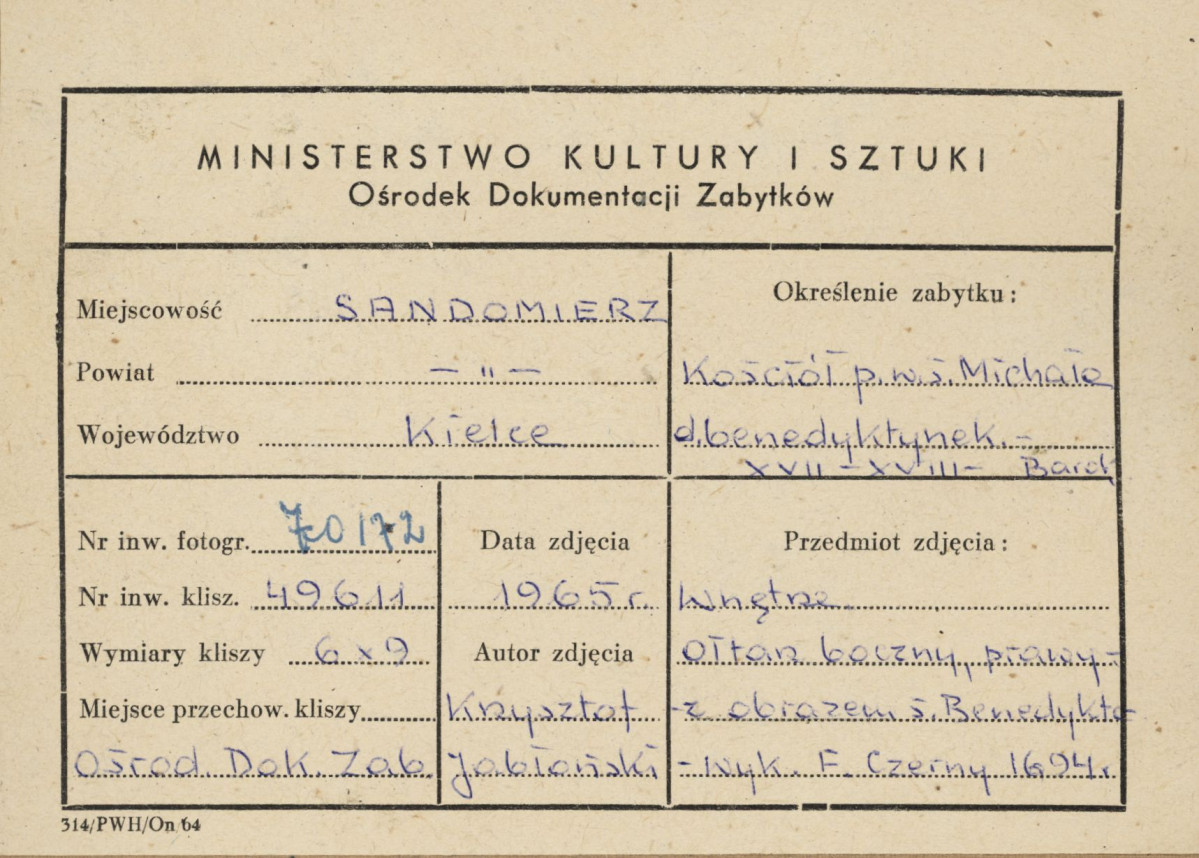 MINISTERSTWO KULTURY I SZTUKI
Ośrodek Dokumentacji Zabytków
Miejscowość SANDOMIERZ
Powiat — " —
Województwo Kielce
Określenie zabytku:
Kościół p.w.ś. Michała
d.benedyktynek.-
XVII-XVIII- Barok
Nr inw. fotogr. 70172
Nr inw. klisz. 49611
Wymiary kliszy 6x9
Miejsce przechow. kliszy
Ośrod. Dok. Zab.
Data zdjęcia
1965 r.
Autor zdjęcia
Krzysztof
Jabłoński
Przedmiot zdjęcia:
Wnętrze
Ołtarz boczny, prawy-
-z obrazem ś. Benedykta-
-wyk. F. Czerny 1694r.
314/PWH/On 64